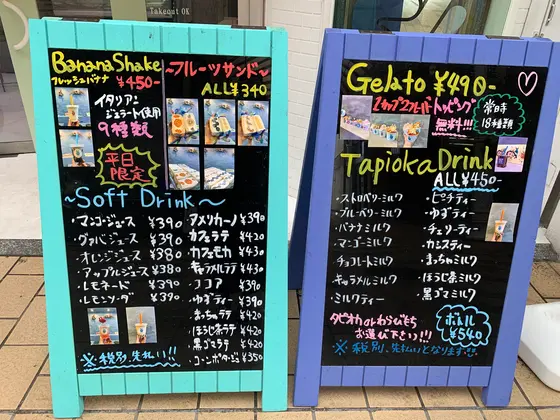 Takeout OK
BananaShake
フレッシュバナナ ¥450-
イタリアン
ジェラート使用
9種類
平日
限定
~フルーツサンド~
ALL¥340
~Soft Drink~
・マンゴージュース ¥390
・グァバジュース ¥390
・オレンジジュース ¥380
・アップルジュース ¥380
・レモネード ¥390
・レモンソーダ ¥390
・アメリカーノ ¥390
・カフェラテ ¥420
・カフェモカ ¥430
・キャラメルラテ ¥430
・ココア ¥390
・ゆずティー ¥390
・まっちゃラテ ¥420
・ほうじ茶ラテ ¥420
・黒ゴマラテ ¥420
・コーンポタージュ ¥350
※税別、先払い!!
Gelato ¥490-
2カップフレーバー トッピング
無料!!!
常時
18種類
Tapioka Drink
ALL¥450-
・ストロベリーミルク
・ブルーベリーミルク
・バナナミルク
・マンゴーミルク
・チョコレートミルク
・キャラメルミルク
・ミルクティー
・ピーチティー
・ゆずティー
・チェリーティー
・カシスティー
・まっちゃミルク
・ほうじ茶ミルク
・黒ゴマミルク
タピオカorわらびもち
お選び下さい!!!
ボトル
¥540
※税別、先払いとなります!!